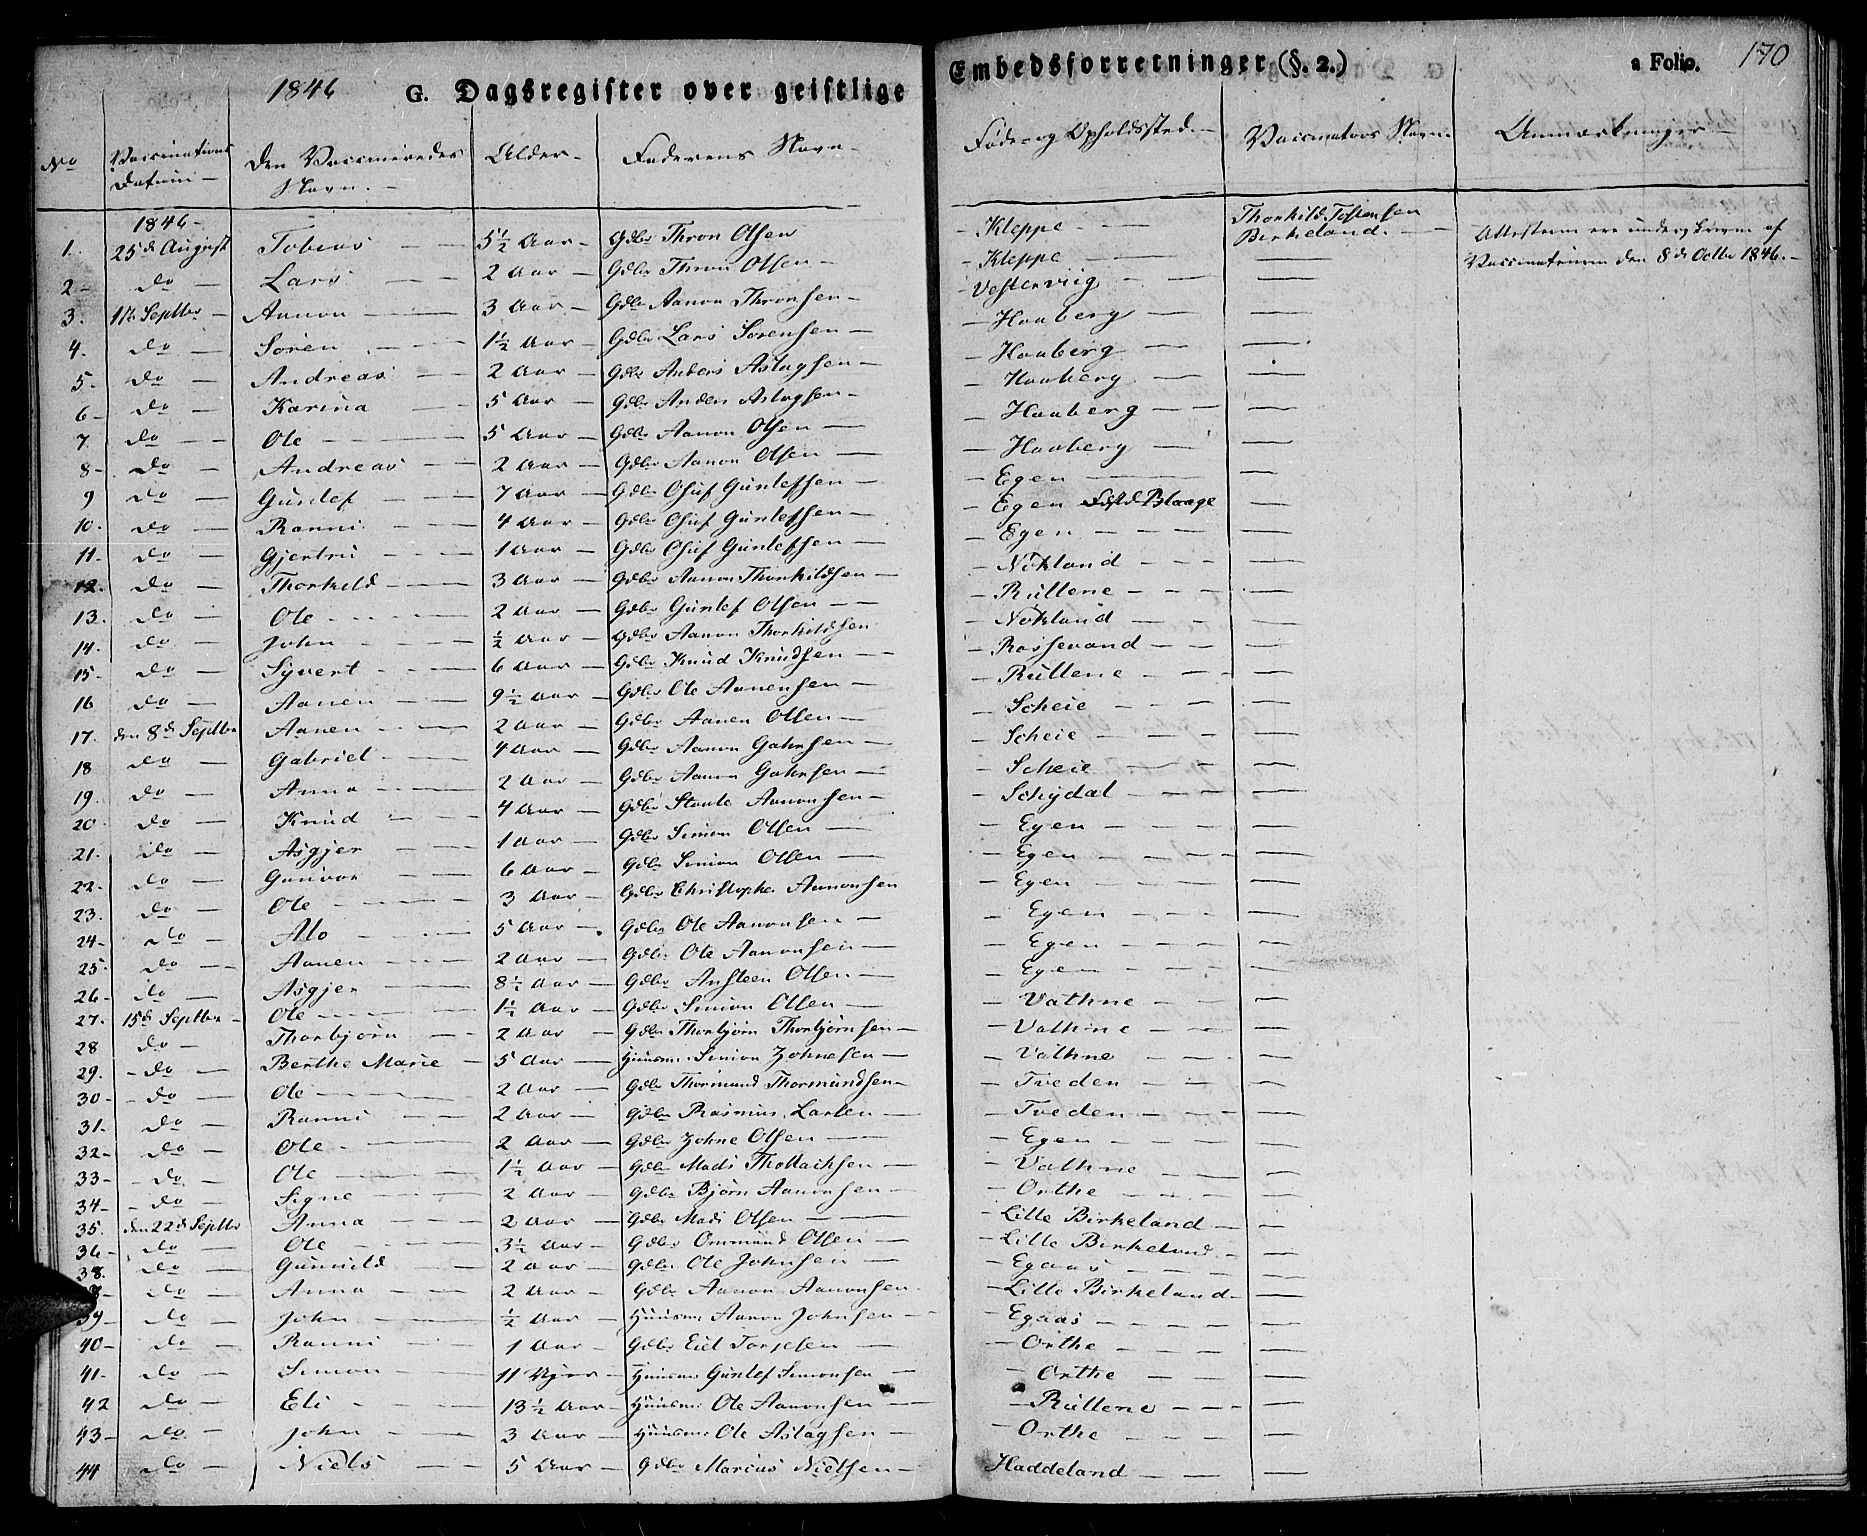 1846 G. Dagsregister over geistlige Embedsforretninger (§. 2.) a Folio. 170
No Vaccinations Datum Den Vaccineredes Navn. Alder Faderens Navn Føde og Opholdssted Vaccinators Navn Anmærkninger
1846
1. 25de August Tobias 5½ Aar Gdbr Thron Olsen Kleppe Thorkild Tostensen Birkeland. Attesterne ere underskrevne af
2 do Lars 2 Aar Gdbr Thron Olsen Kleppe Vaccinateuren den 8de Octbr 1846.
3. Septbr Aanon 3 Aar Gdbr Aanon Thronsen Vestervig
4. do Søren 1½ Aar Gdbr Lars Sørensen Haaberg
5. do Andreas 2 Aar Gdbr Anders Aslagsen Haaberg
6 do Karina 5 Aar Gdbr Anders Aslagsen Haaberg
7. do Ole 5 Aar Gdbr Aanon Olsen Haaberg
8 do Andreas 2 Aar Gdbr Aanon Olsen Haaberg
9 do Gunlef 7 Aar Gdbr Osuf Gunlefsen Egen
10. do Ranni 4 Aar Gdbr Osuf Gunlefsen Egen Fdstd Blaage
11. do Gjertru 1 Aar Gdbr Osuf Gunlefsen Egen
12. do Thorkild 3 Aar Gdbr Aanon Thorkildsen Nökland
13. do Ole 2 Aar Gdbr Gunlef Olsen Rullene
14. do John ½ Aar Gdbr Aanon Thorkildsen Nökland
15. do Syvert 6 Aar Gdbr Knud Knudsen Rossevand
16 do Aanen 9½ Aar Gdbr Ole Aanensen Rullene
17. den 8de Septbr Aanen 2 Aar Gdbr Aanen Olsen Scheie
18 do Gabriel 4 Aar Gdbr Aanon Scheie
19. do Anna 2 Aar Gdbr Aanon Scheie
20 do Knud 4 Aar Gdbr Staale Aanonsen Schydal
21. do Asgjer 1 Aar Gdbr Simon Olsen Egen
22. do Gunvor 6 Aar Gdbr Simon Olsen Egen
23. do Ole 3 Aar Gdbr Christopher Aanonsen Egen
24 do Alo 5 Aar Gdbr Ole Aanonsen Egen
25. do Aanen 2 Aar Gdbr Ole Aanonsen Egen
26 do Asgjer 8½ Aar Gdbr Ansteen Olsen Egen
27. 15de Septbr Ole 1½ Aar Gdbr Simon Olsen Vathne
28 do Thorbjörn 2 Aar Gdbr Thorbjörn Thorbjörnsen Vathne
29. do Berthe Marie 5 Aar Huusm: Simon Johnesen Vathne
30 do Ole 2 Aar Gdbr Thormund Thormundsen Tveden
31. do Ranni 2 Aar Gdbr Rasmus Larsen Tveden
32 do Ole 2 Aar Gdbr Johne Olsen Egen
33 do Ole 1½ Aar Gdbr Mads Vathne
34 do Signe 2 Aar Gdbr Bjørn Aanonsen Orthe
35. den 22de Septbr Anna 2 Aar Gdbr Mads Olsen Lille Birkeland
36 do Ole 3½ Aar Gdbr Ommund Olsen Lille Birkeland
38. do Gunnild 2 Aar Gdbr Ole Johnsen Egaas
do Anna 2 Aar Gdbr Aanon Aanonsen Lille Birkeland
39 do John ½ Aar Huusm: Aanon Johnsen Egaas
40 do Ranni 1 Aar Gdbr Eiel Torjesen Orthe
41. do Simon 11 Uger Huusm: Gunlef Simonsen Orthe
42 do Eli 13½ Aar Huusm: Ole Aanonsen Rullene
43 do John 3 Aar Huusm: Ole Aslagsen Orthe
44 do Niels 5 Aar Gdbr Marius Nielsen Haddeland